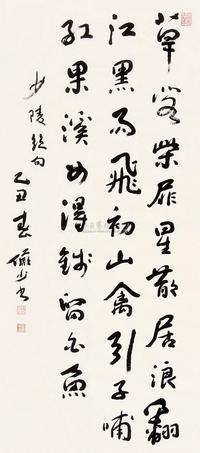 草閣柴扉星散居浪翻
江黑雨飛初山禽引子哺
紅果溪女得錢留白魚
少陵絕句
乙丑春